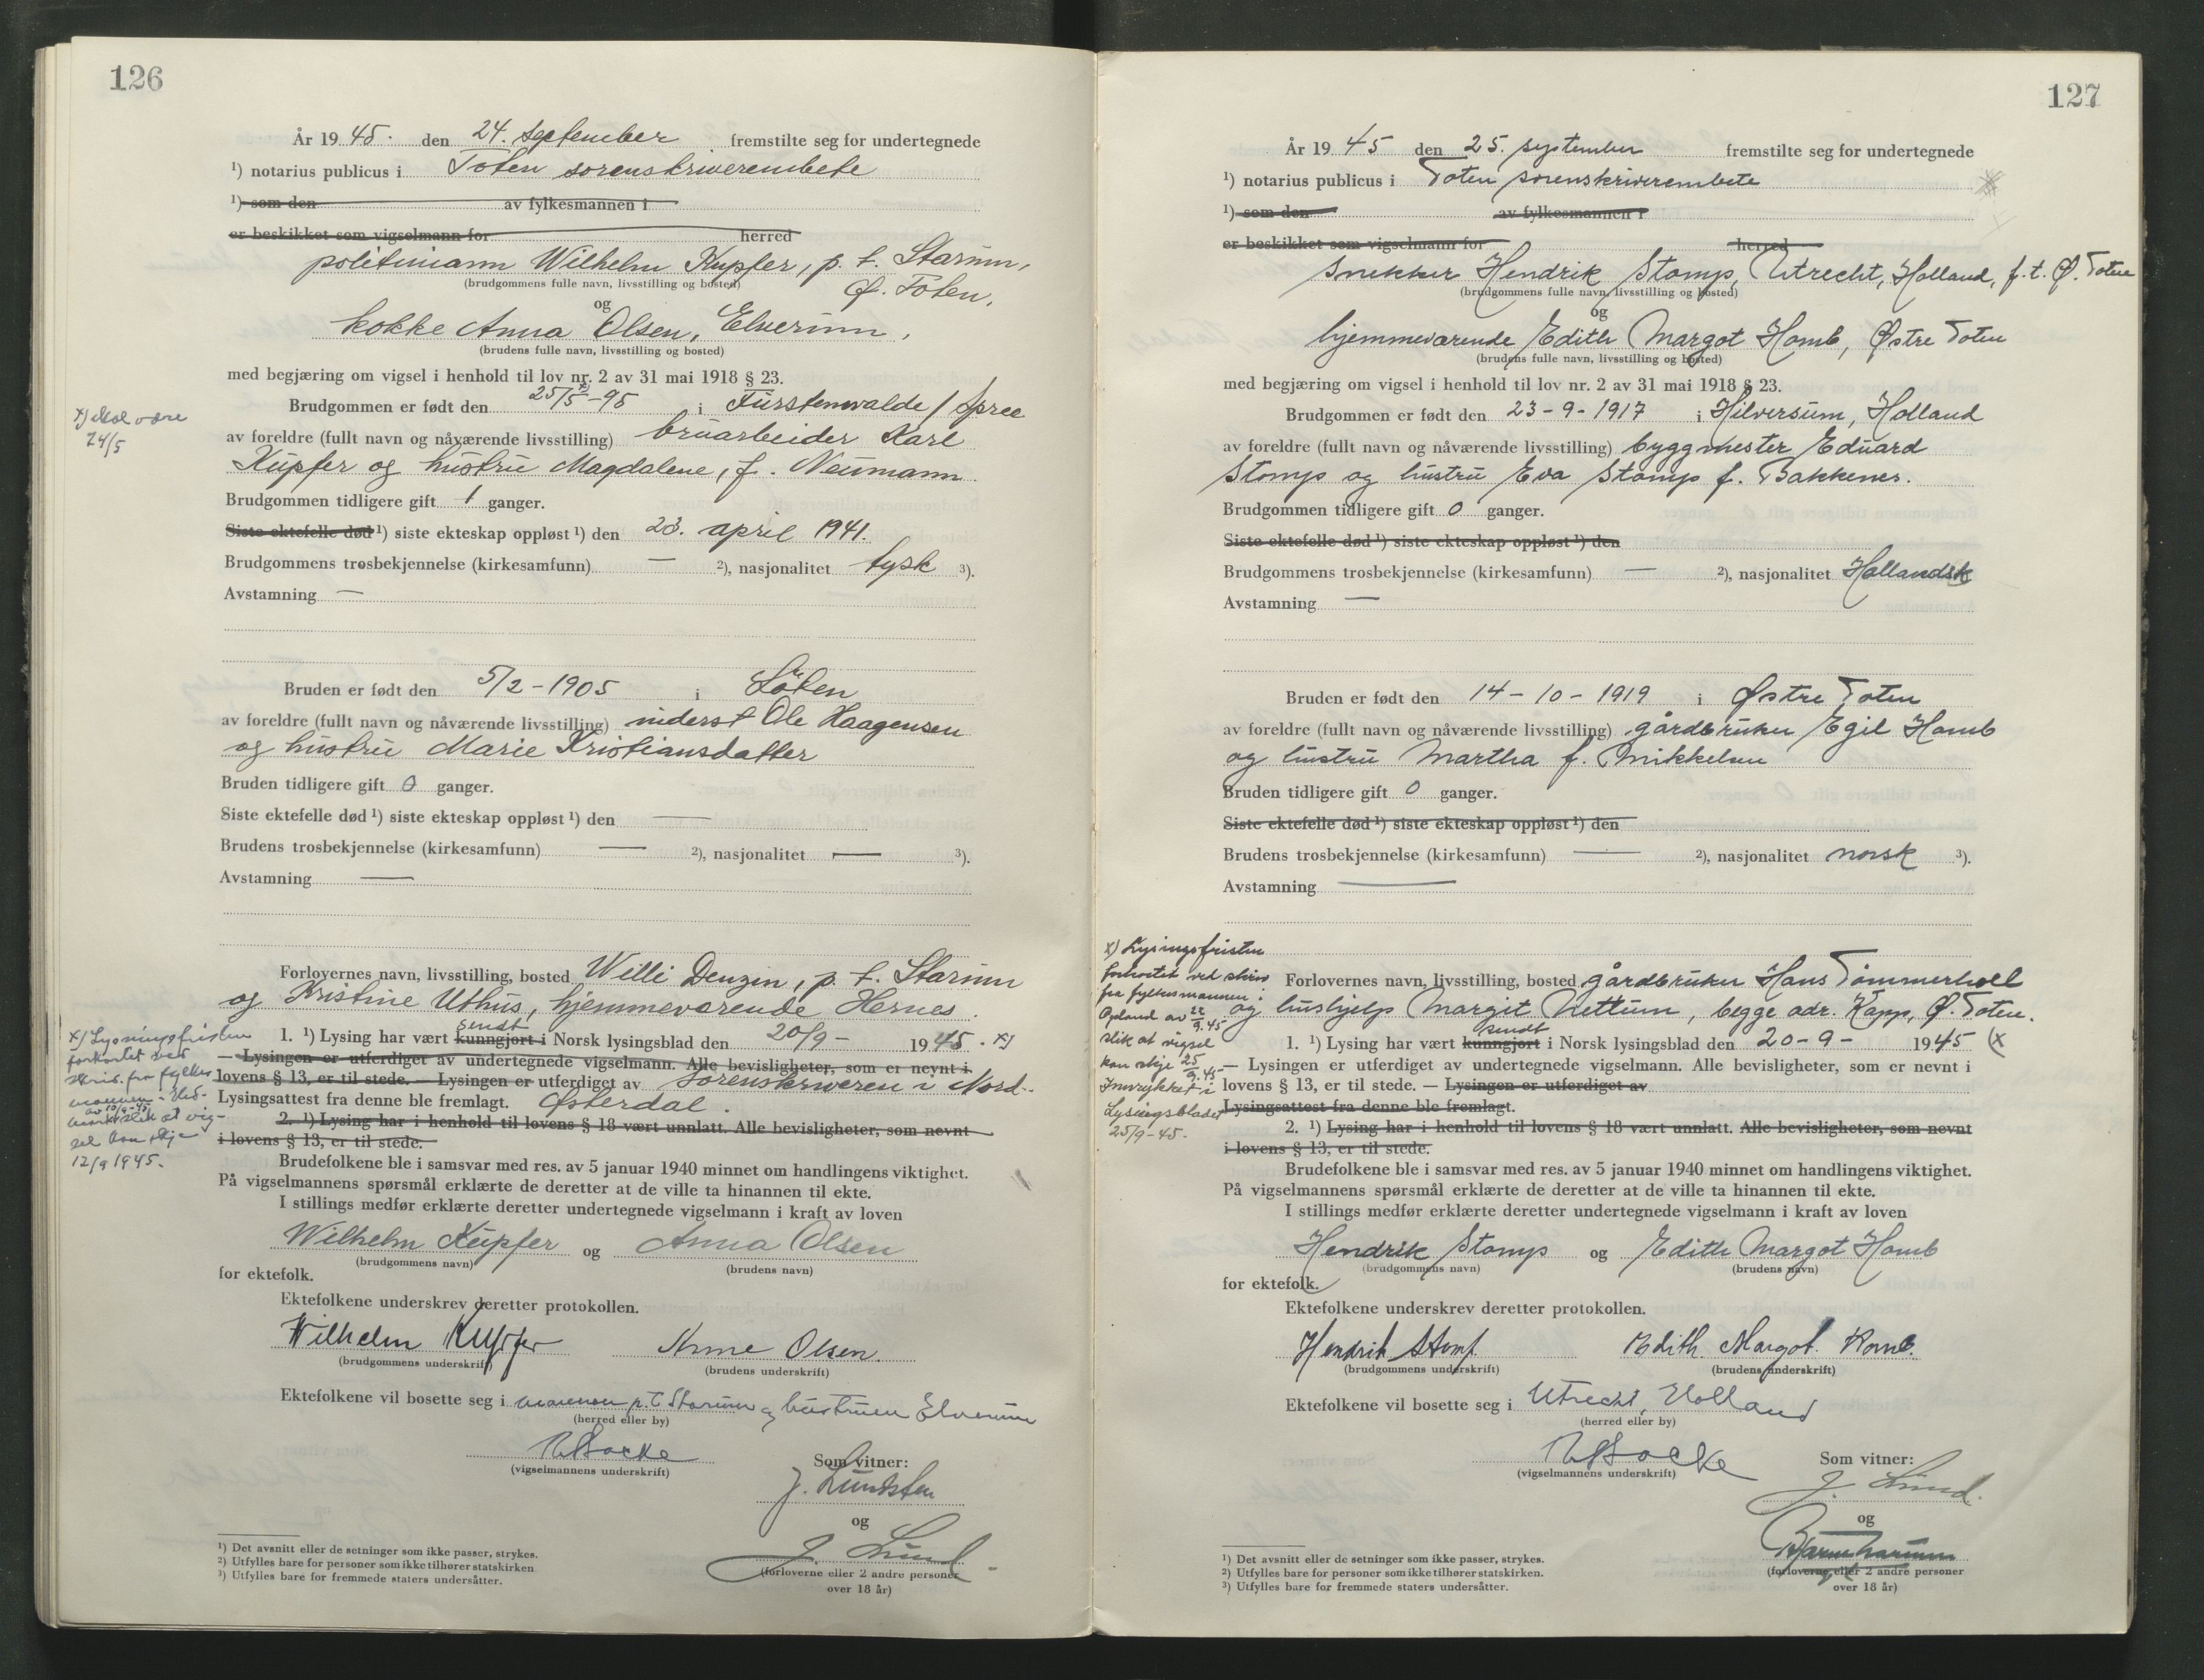 126
År 1945. den 24. september fremstilte seg for undertegnede
¹) notarius publicus i Toten sorenskriverembete
¹) som den av fylkesmannen i
er beskikket som vigselmann for herred
politimann Wilhelm Kupfer, p. t. Starum,
(brudgommens fulle navn, livsstilling og bosted) Ø. Toten,
og
kokke Anna Olsen, Elverum,
(brudens fulle navn, livsstilling og bosted)
med begjæring om vigsel i henhold til lov nr. 2 av 31 mai 1918 § 23.
Brudgommen er født den 25/5 x) -95 i Fürstenwalde / Spree
x) skal være
24/5
av foreldre (fullt navn og nåværende livsstilling) bruarbeider Karl
Kupfer og hustru Magdalene, f. Neumann
Brudgommen tidligere gift 1 ganger.
Siste ektefelle død ¹) siste ekteskap oppløst ¹) den 23. april 1941.
Brudgommens trosbekjennelse (kirkesamfunn) — ²), nasjonalitet tysk ³).
Avstamning —
Bruden er født den 5/2 - 1905 i Løten
av foreldre (fullt navn og nåværende livsstilling) inderst Ole Haagensen
og hustru Marie Kristiansdatter
Bruden tidligere gift 0 ganger.
Siste ektefelle død ¹) siste ekteskap oppløst ¹) den —
Brudens trosbekjennelse (kirkesamfunn) — ²), nasjonalitet — ³).
Avstamning —
Forlovernes navn, livsstilling, bosted Willi Denzin, p. t. Starum
og Kristine Uthus, hjemmeværende Hernes.
sendt
1. ¹) Lysing har vært kunngjort i Norsk lysingsblad den 20/9 - 1945. x)
— Lysingen er utferdiget av undertegnede vigselmann. Alle bevisligheter, som er nevnt i
lovens § 13, er til stede. — Lysingen er utferdiget av Sorenskriveren i Nord-
Lysingsattest fra denne ble fremlagt. Østerdal.
2. ¹) Lysing har i henhold til lovens § 18 vært unnlatt. Alle bevisligheter, som nevnt
i lovens § 13, er til stede.
x) Lysningsfristen
forkortet ved
skriv. fra fylkes
mannen i Hed-
av 10/9-45
mark slik at vig-
sel kan skje
12/9 1945.
Brudefolkene ble i samsvar med res. av 5 januar 1940 minnet om handlingens viktighet.
På vigselmannens spørsmål erklærte de deretter at de ville ta hinannen til ekte.
I stillings medfør erklærte deretter undertegnede vigselmann i kraft av loven
Wilhelm Kupfer og Anna Olsen
(brudgommens navn) (brudens navn)
for ektefolk.
Ektefolkene underskrev deretter protokollen.
Wilhelm Kupfer Anne Olsen.
(brudgommens underskrift) (brudens underskrift)
Ektefolkene vil bosette seg i mannen p.t. Starum og hustruen Elverum
(herred eller by)
(vigselmannens underskrift)
Som vitner:
J. Lundsten
og
J. Lund
(forloverne eller 2 andre personer
over 18 år)
¹) Det avsnitt eller de setninger som ikke passer, strykes.
²) Utfylles bare for personer som ikke tilhører statskirken
³) Utfylles bare for fremmede staters undersåtter.
127
År 1945 den 25. september fremstilte seg for undertegnede
¹) notarius publicus i Toten sorenskriverembete
¹) som den av fylkesmannen i
er beskikket som vigselmann for herred
Snekker Hendrik Stomp, Utrecht, Holland, f. t. Ø. Toten
(brudgommens fulle navn, livsstilling og bosted)
og
hjemmeværende Edith Margot Homb, Østre Toten
(brudens fulle navn, livsstilling og bosted)
med begjæring om vigsel i henhold til lov nr. 2 av 31 mai 1918 § 23.
Brudgommen er født den 23 - 9 - 1917 i Hilversum, Holland
av foreldre (fullt navn og nåværende livsstilling) byggmester Eduard
Stomp og hustru Eva Stomp f. Bakkener.
Brudgommen tidligere gift 0 ganger.
Siste ektefelle død ¹) siste ekteskap oppløst ¹) den
Brudgommens trosbekjennelse (kirkesamfunn) — ²), nasjonalitet Hollandsk
Avstamning —
Bruden er født den 14 - 10 - 1919 i Østre Toten
av foreldre (fullt navn og nåværende livsstilling) gårdbruker Egil Homb
og hustru Martha f. Mikkelsen
Bruden tidligere gift 0 ganger.
Siste ektefelle død ¹) siste ekteskap oppløst ¹) den
Brudens trosbekjennelse (kirkesamfunn) — ²), nasjonalitet norsk ³).
Avstamning —
x) Lysingsfristen
forkortet ved skriv
fra fylkesmannen i
Opland av 22/9.45
slik at vigsel
kan skje 25/9.45
Innrykket i
Lysingsbladet
25/9-45.
Forlovernes navn, livsstilling, bosted gårdbruker Hans Tømmerholl
og hushjelp Margit Nettum, begge adr. Kapp, Ø. Toten.
sendt
1. ¹) Lysing har vært kunngjort i Norsk lysingsblad den 20 - 9 - 1945 (x
— Lysingen er utferdiget av undertegnede vigselmann. Alle bevisligheter, som er nevnt i
lovens § 13, er til stede. — Lysingen er utferdiget av
Lysingsattest fra denne ble fremlagt.
2. ¹) Lysing har i henhold til lovens § 18 vært unnlatt. Alle bevisligheter, som nevnt
i lovens § 13, er til stede.
Brudefolkene ble i samsvar med res. av 5 januar 1940 minnet om handlingens viktighet.
På vigselmannens spørsmål erklærte de deretter at de ville ta hinannen til ekte.
I stillings medfør erklærte deretter undertegnede vigselmann i kraft av loven
Hendrik Stomp og Edith Margot Homb
(brudgommens navn) (brudens navn)
for ektefolk.
Ektefolkene underskrev deretter protokollen.
Hendrik Stomp Edith Margot Homb.
(brudgommens underskrift) (brudens underskrift)
Ektefolkene vil bosette seg i Utrecht, Holland
(herred eller by)
(vigselmannens underskrift)
Som vitner:
J. Lund.
og
(forloverne eller 2 andre personer
over 18 år)
¹) Det avsnitt eller de setninger som ikke passer, strykes.
²) Utfylles bare for personer som ikke tilhører statskirken.
³) Utfylles bare for fremmede staters undersåtter.